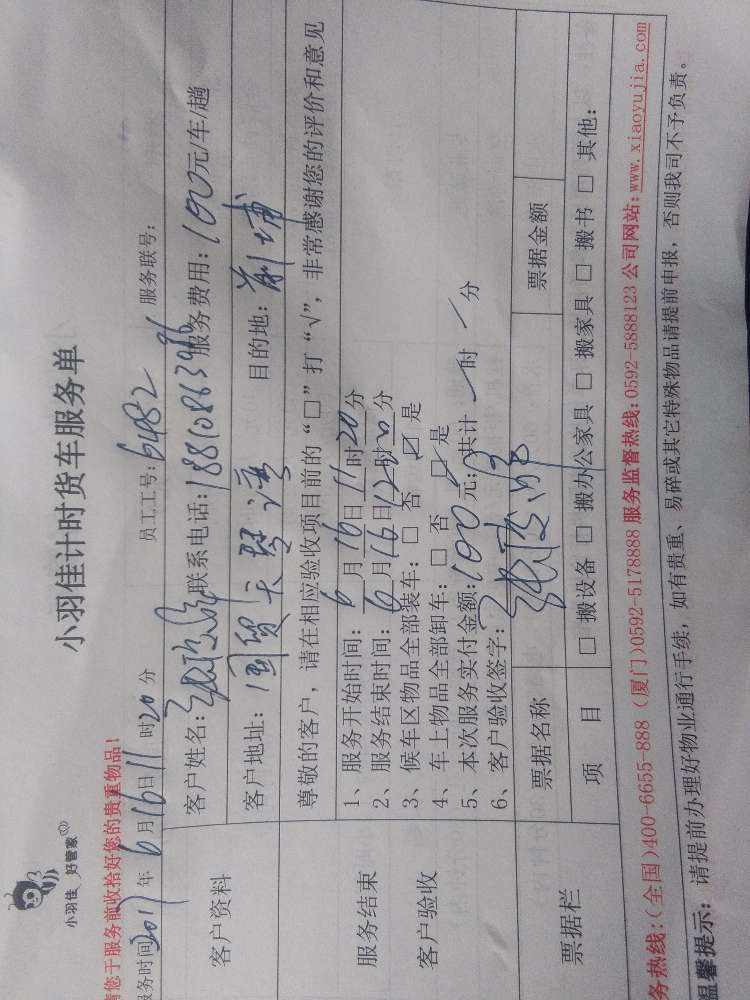 小羽佳 好管家
小羽佳计时货车服务单
请您于服务前收拾好您的贵重物品!
服务时间2017年6月16日11时20分 员工工号:6482 服务联号:
客户资料
客户姓名: 联系电话:18810863996 服务费用:100元/车/趟
客户地址:国贸天琴湾 目的地:前埔
尊敬的客户,请在相应验收项目前的“□”打“√”,非常感谢您的评价和意见
服务结束
客户验收
1、服务开始时间:6月16日11时20分
2、服务结束时间:6月16日12时20分
3、候车区物品全部装车:□ 否 ☑ 是
4、车上物品全部卸车:□ 否 ☑ 是
5、本次服务实付金额:100元;共计 时 分
6、客户验收签字:
票据栏
票据名称 票据金额
项 目 □ 搬设备 □ 搬办公家具 □ 搬家具 □ 搬书 □ 其他:
务热线:(全国)400-6655-888 (厦门)0592-5178888 服务监督热线:0592-5888123 公司网站:www.xiaoyujia.com
温馨提示: 请提前办理好物业通行手续,如有贵重、易碎或其它特殊物品请提前申报,否则我司不予负责。